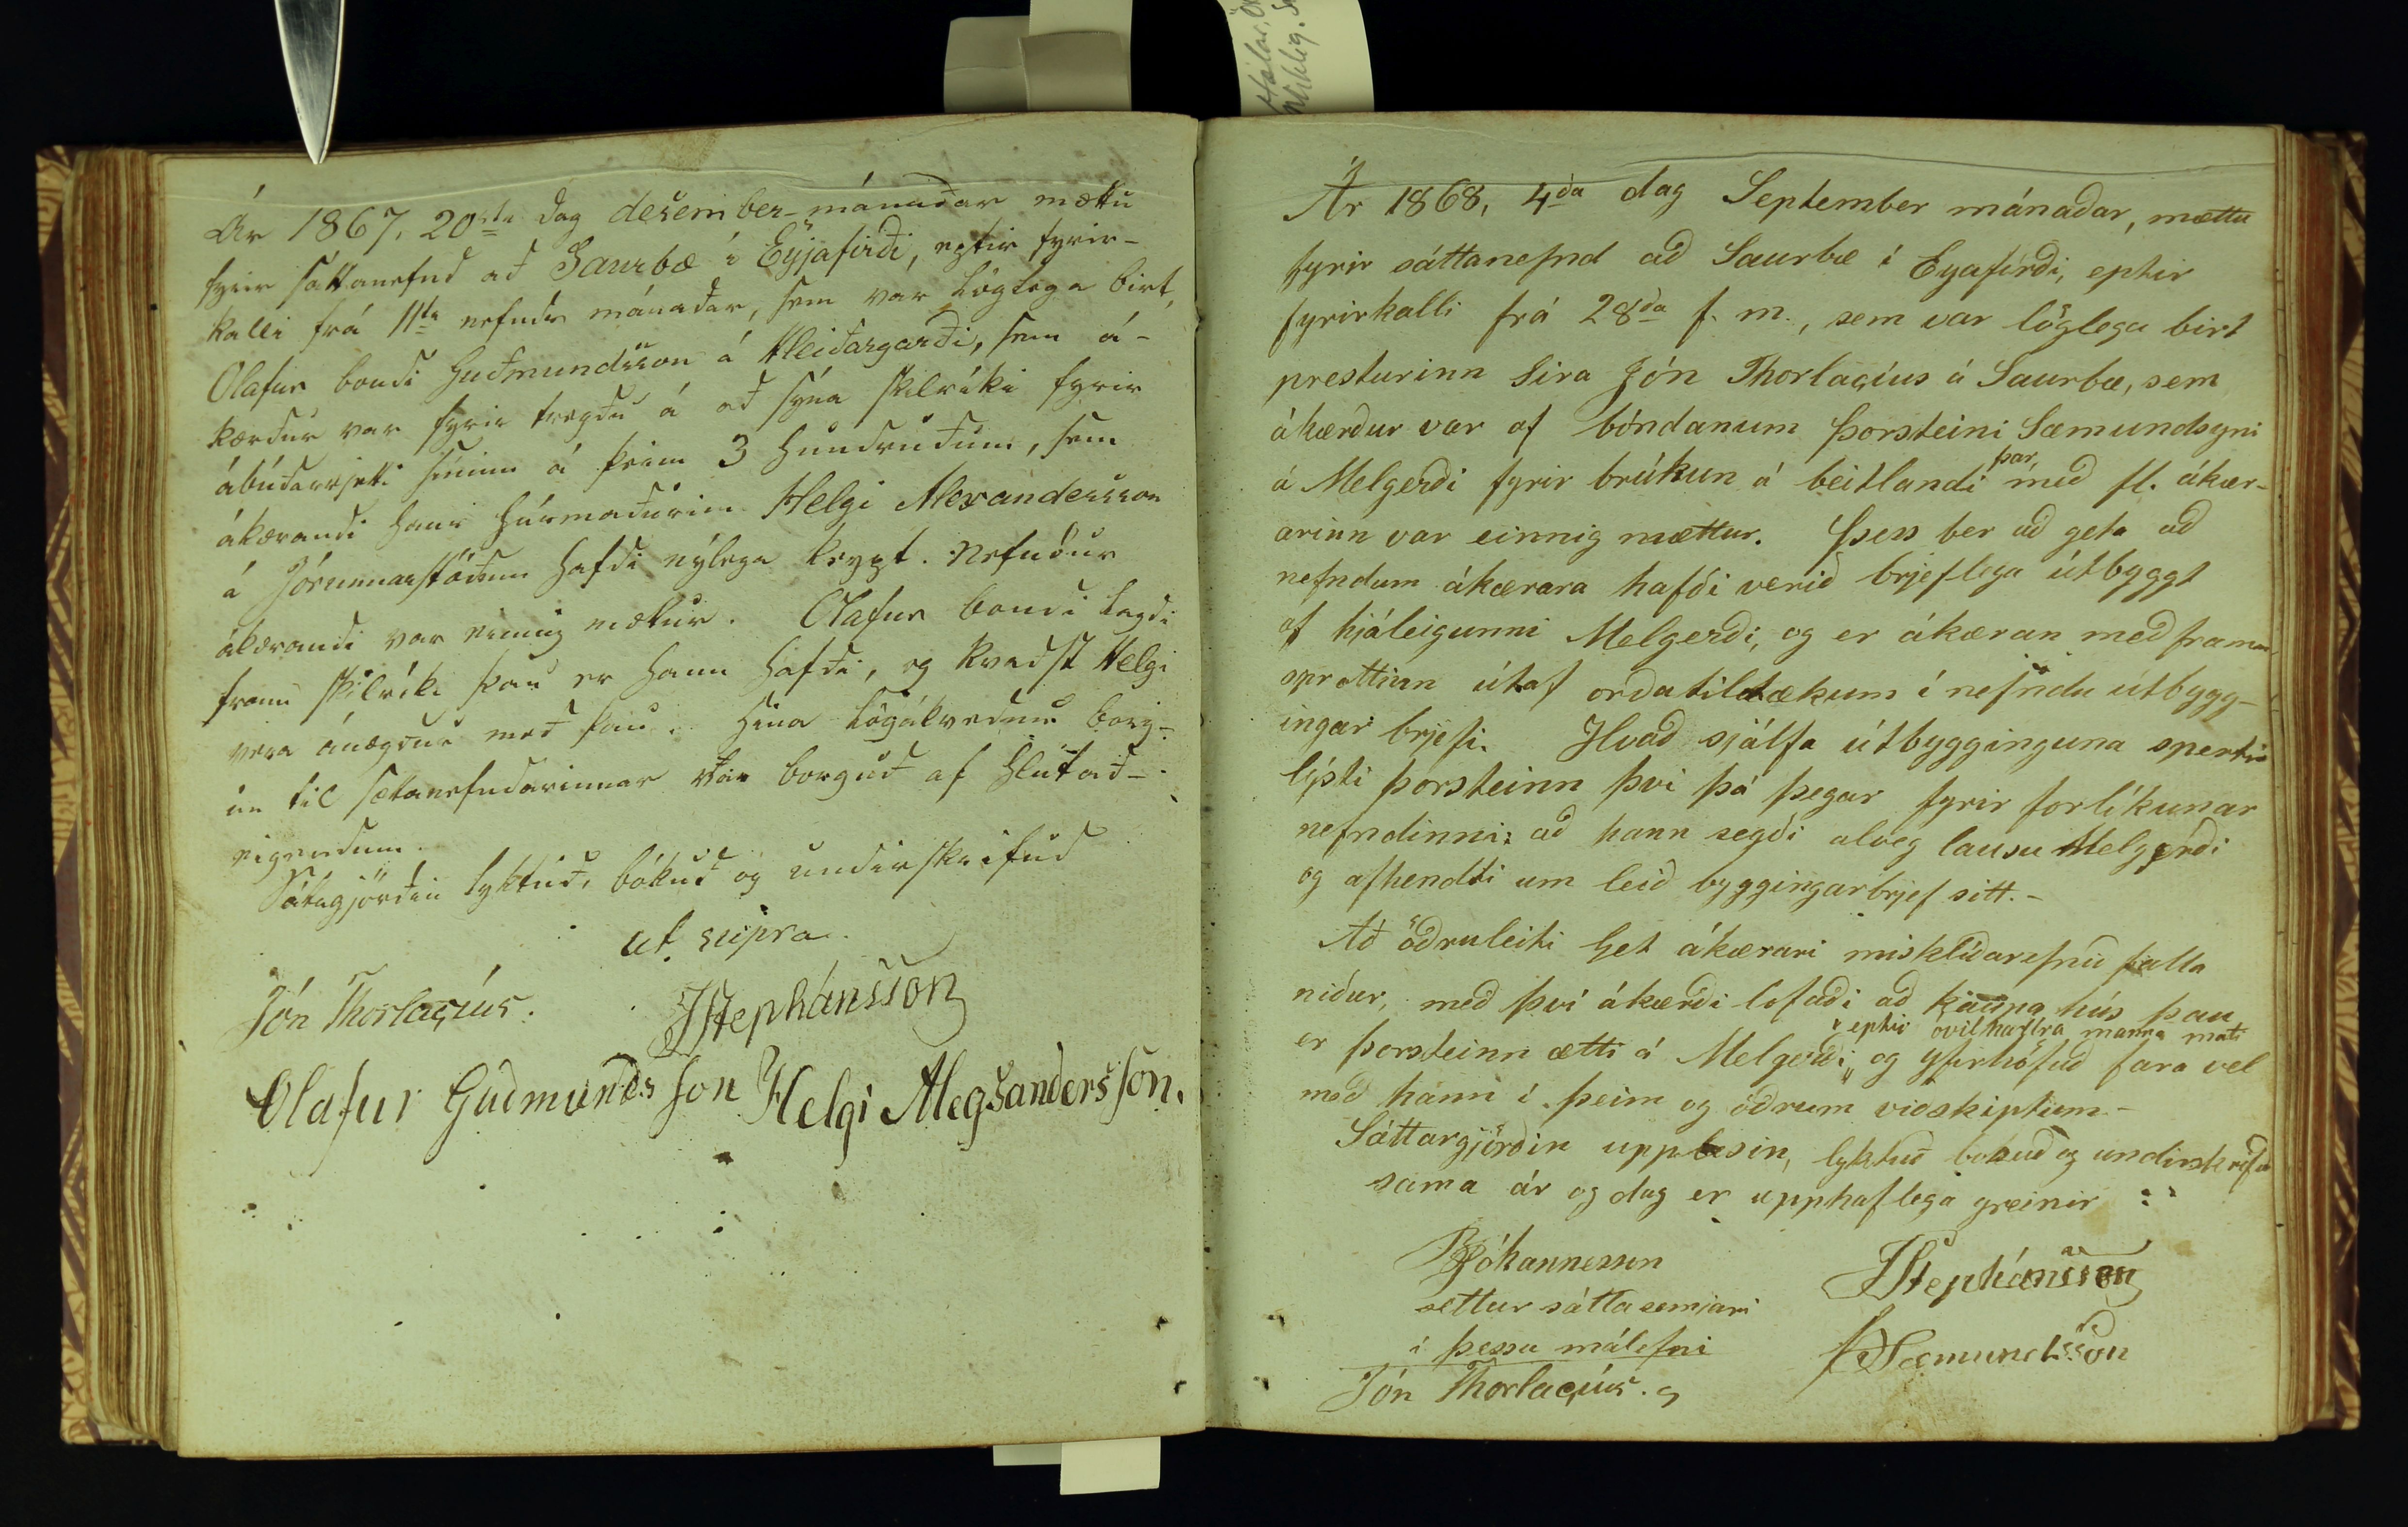 Ár 1867, 20sta dag desember-mánaðar mættu
fyrir sáttanefnd að Saurbæ í Eyjafirði, eptir fyrir-
kalli frá 11ta nefnds mánaðar, sem var löglega birt,
Olafur bondi Guðmundsson á Hleiðargarði, sem á-
kærður var fyrir tregðu á að sýna skilríki fyrir
ábúðarrjetti sínum á þeim 3 hundruðum, sem
ákærandi hans húsmaðurinn Helgi Alexandersson
á Jórunnarstöðum hafði nýlega keypt. Nefndur
ákærandi var einnig mættur. Olafur bondi lagði
fram skilríki þau er hann hafði, og kvaðst Helgi
vera ánægður með þau. Hina lögákveðnu borg-
un til sáttanefndarinnar var borguð af hlutað-
eigendum.
Sáttagjörðin lyktuð, bókuð og undirskrifuð
ut supra.
Jón Thorlacíus. JStephánsson
Olafur Guðmundsson Helgi Alegsandersson.
Ár 1868, 4ða dag September mánaðar, mættu
fyrir sáttanefnd að Saurbæ í Eyafirði, eptir
fyrirkalli frá 28ða f. m., sem var löglega birt
presturinn Sira Jón Thorlacíus á Saurbæ, sem
ákærður var af bóndanum Þorsteini Sæmundsyni
á Melgerði fyrir brúkun á beitlandi þar með fl. ákær-
arinn var einnig mættur. Þess ber að geta að
nefndum ákærara hafði verið brjeflega útbyggt
af hjáleigunni Melgerði, og er ákæran með fram
sprottinn útaf orðatiltækum í nefndu útbygg-
ingar brjefi. Hvað sjálfa útbygginguna snerti
lýsti Þorsteinn því þá þegar fyrir forlíkunar
nefndinni: að hann segði alveg lausu Melgerði
og afhendti um leið byggingarbrjef sitt.-
Að öðruleiti Ljet ákærari misklíðarefnið falla
niður, með því ákærði lofaði að kaupa hús þau
er Þorsteinn ætti á Melgerði, eptir óvilhallra manna mati og yfirhöfuð fara vel
með hánn í þeim og öðrum viðskiptum-
Sáttargjörðin upplesin, lyktuð bókuð og undirskrifuð
sama ár og dag er upphaflega greinir :
Jóhannesson JStephánsson
settur sáttasemjari
í þessu málefni ÞSæmundsson
Jón Thorlacíus.